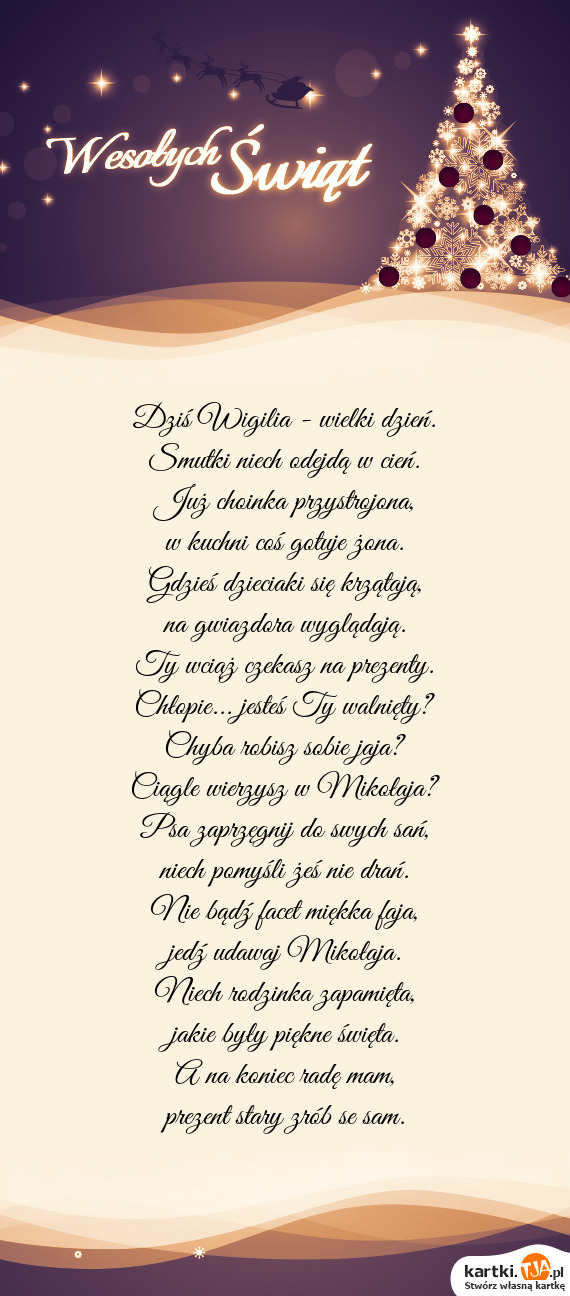 Wesołych Świąt
Dziś Wigilia - wielki dzień.
Smutki niech odejdą w cień.
Już choinka przystrojona,
w kuchni coś gotuje żona.
Gdzieś dzieciaki się krzątają,
na gwiazdora wyglądają.
Ty wciąż czekasz na prezenty.
Chłopie... jesteś Ty walnięty?
Chyba robisz sobie jaja?
Ciągle wierzysz w Mikołaja?
Psa zaprzęgnij do swych sań,
niech pomyśli żeś nie drań.
Nie bądź facet miękka faja,
jedź udawaj Mikołaja.
Niech rodzinka zapamięta,
jakie były piękne święta.
A na koniec radę mam,
prezent stary zrób se sam.
kartki.TJA.pl
Stwórz własną kartkę